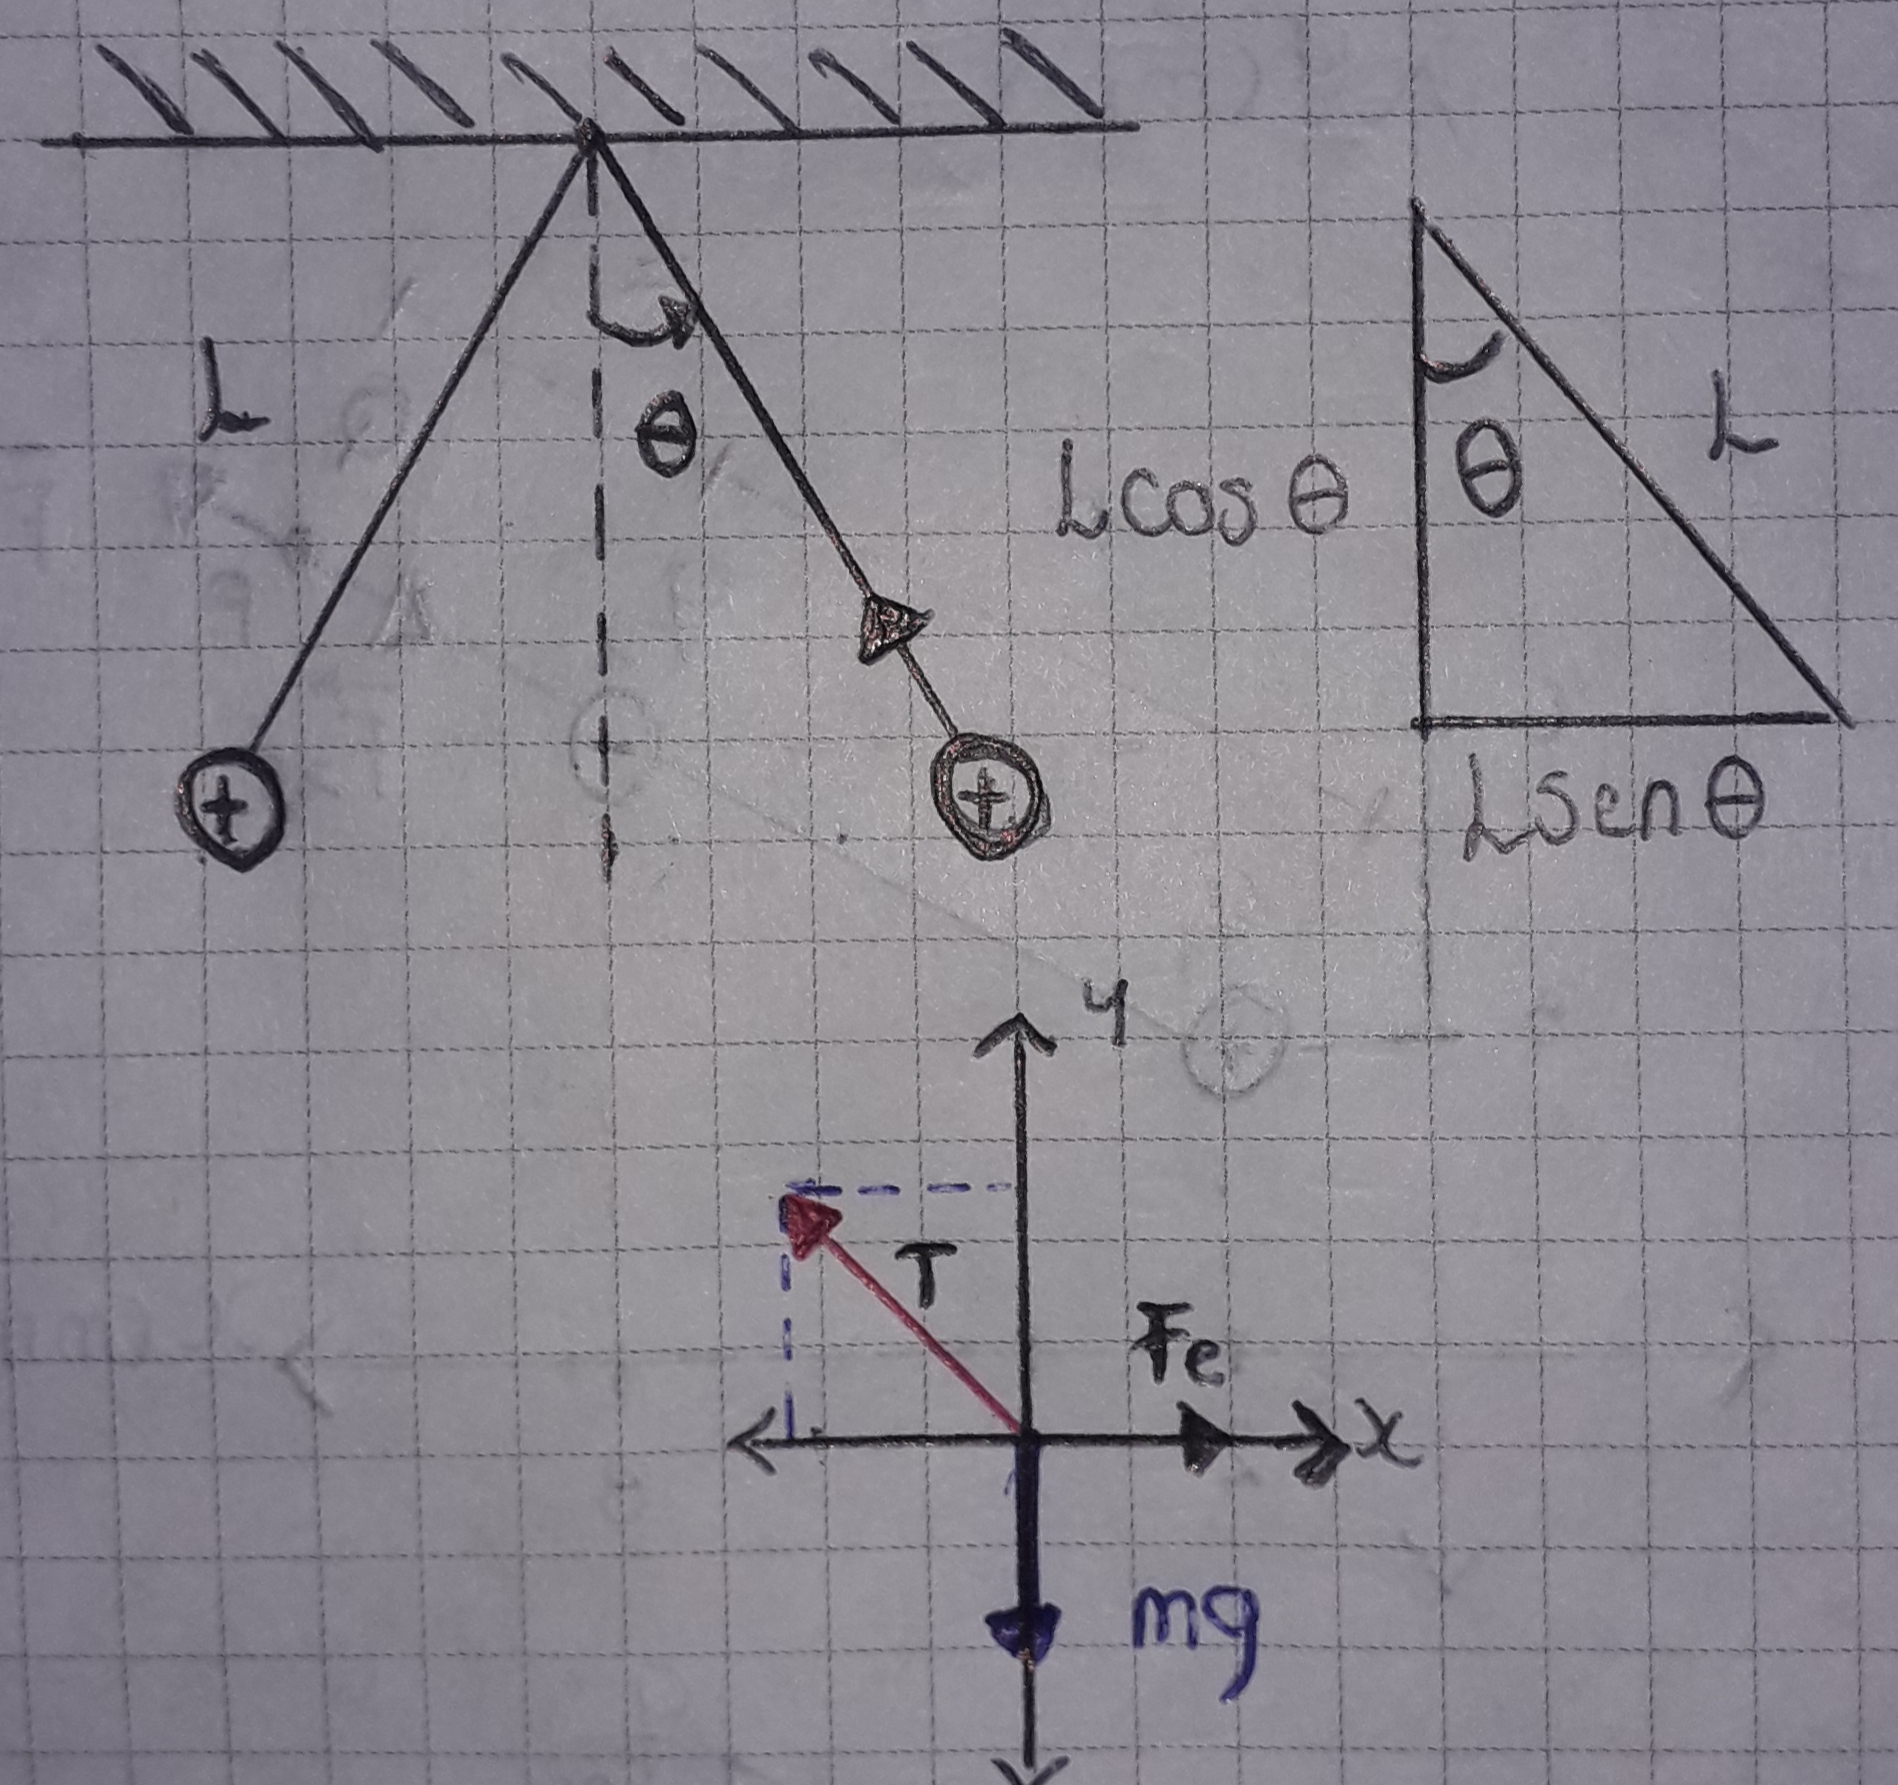 L
θ
+
+
L cos θ
θ
L
L sen θ
y
T
Fe
x
mg